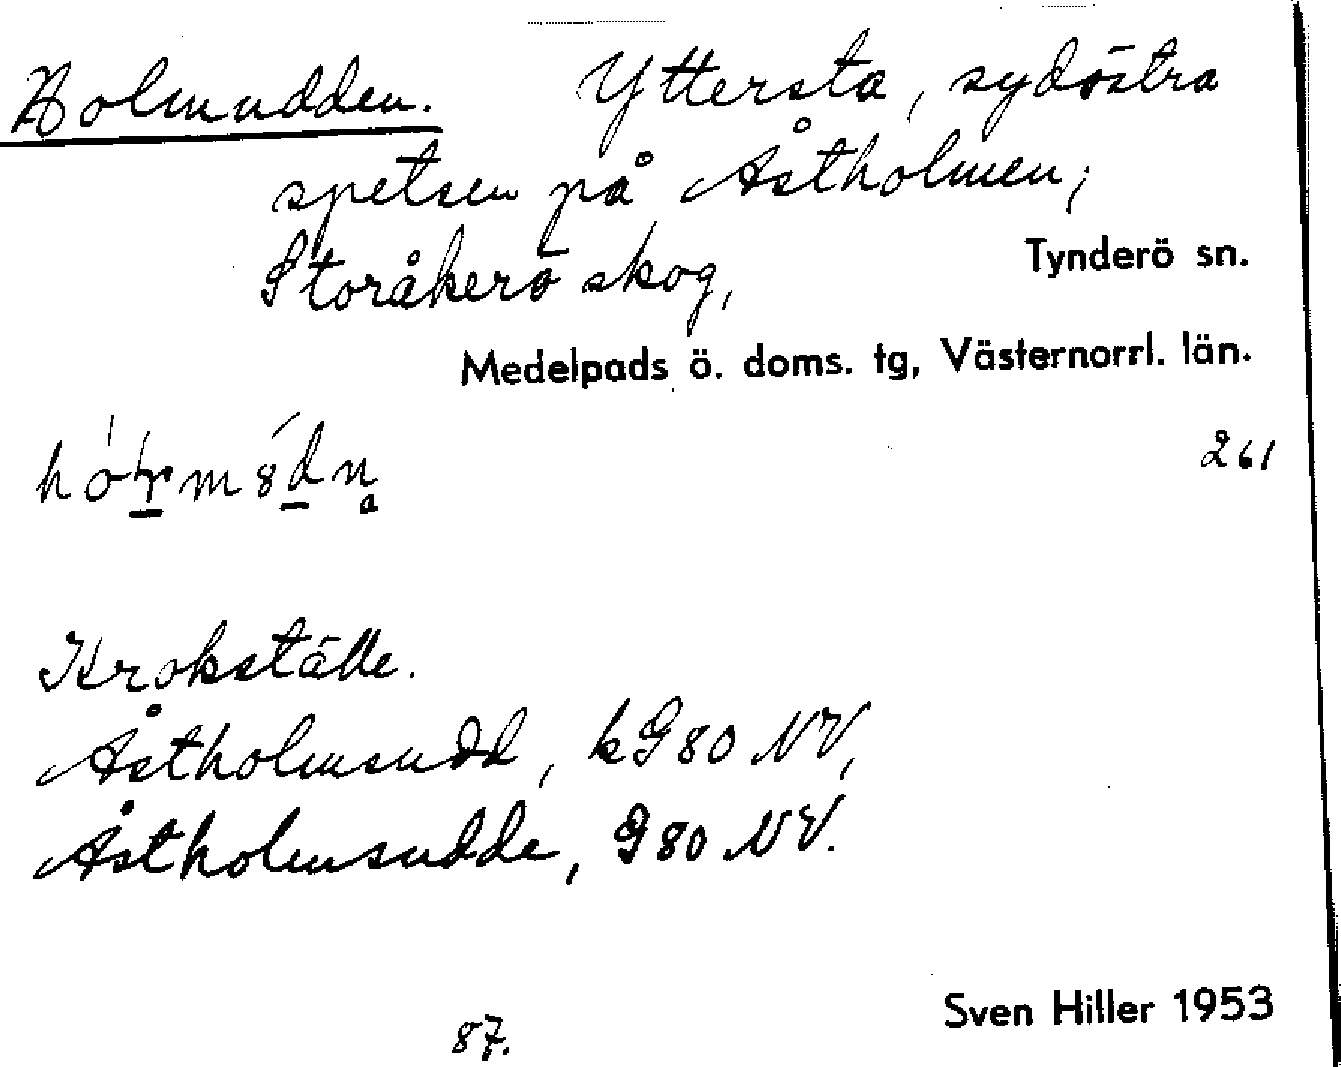 Holmudden. Yttersta, sydöstra
spetsen på Åstholmen,
Storåkerö skog, Tynderö sn.
Medelpads ö. doms. tg, Västernorrl. län.
261
Krokställe.
Åstholmsudd, kG80 NV,
Åstholmsudde, G80 NV.
Sven Hiller 1953
87.